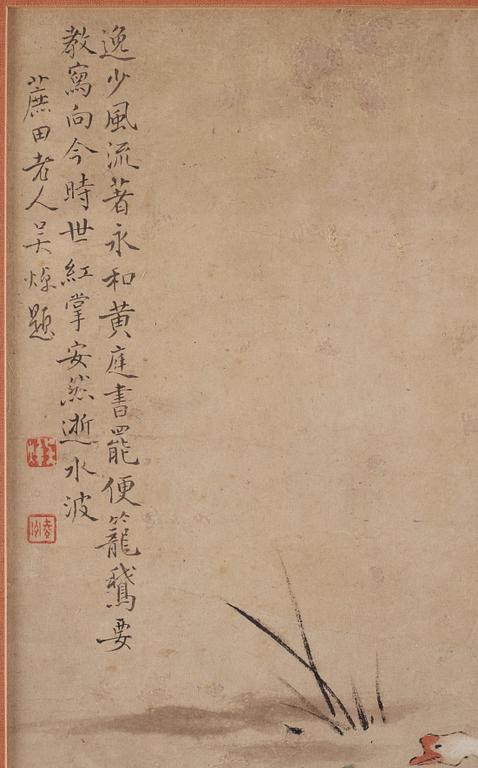 逸少風流著永和黃庭書罷便籠鵝要
教寫向今時世紅掌安然逝水波
蔗田老人吳焯題